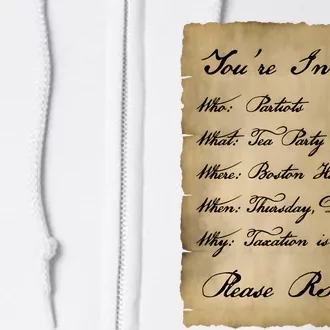 You're In
Who: Partiots
What: Tea Party
Where: Boston H
When: Thursday,
Why: Taxation is
Please R